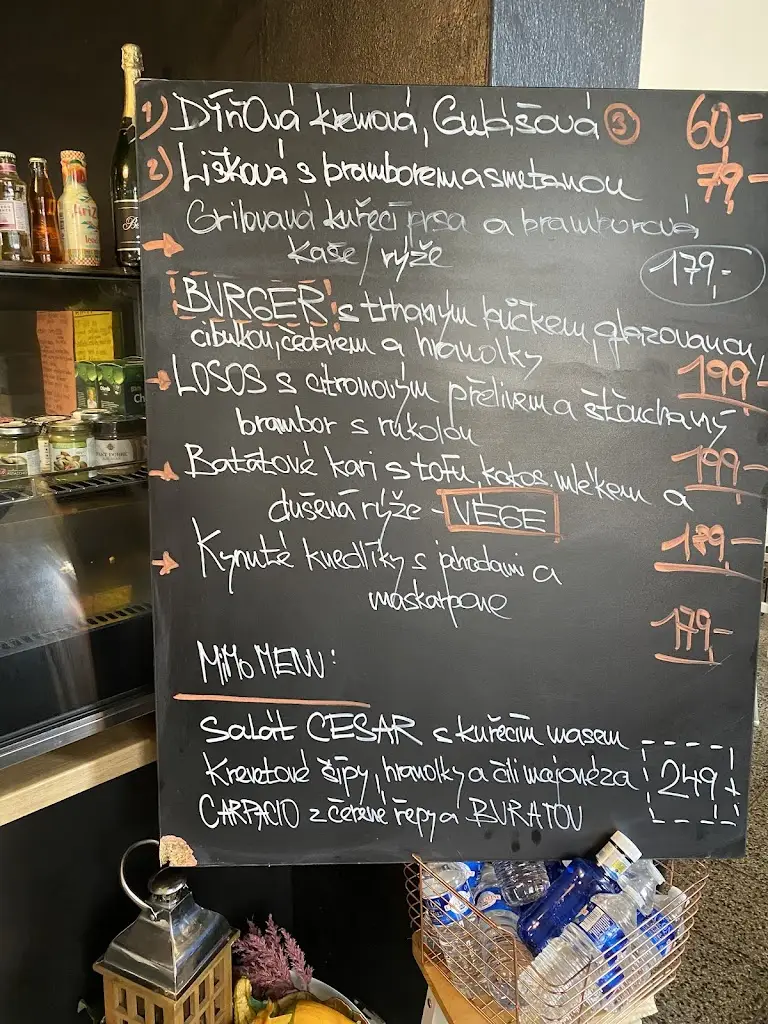 1) Dýňová krémová, Gulášová 3 60-
2) Lišková s bramborem a smetanou 79,-
Grilovaná kuřecí prsa a bramborová
kaše / rýže 179,-
BURGER s trhaným bůčkem, glazovanou
cibulkou, čedarem a hranolky 199-
LOSOS s citronovým přelivem a šťouchaný
brambor s rukolou 199-
Batátové kari s tofu, kokos. mlékem a
dušená rýže - VEGE 189-
Kynuté knedlíky s jahodami a
maskarpone 179,-
MiMo MENU:
Salát CESAR s kuřecím masem
Krevetové šípy, hranolky a čili majonéza 249,-
CARPACIO z čérené řepy a BURATOU